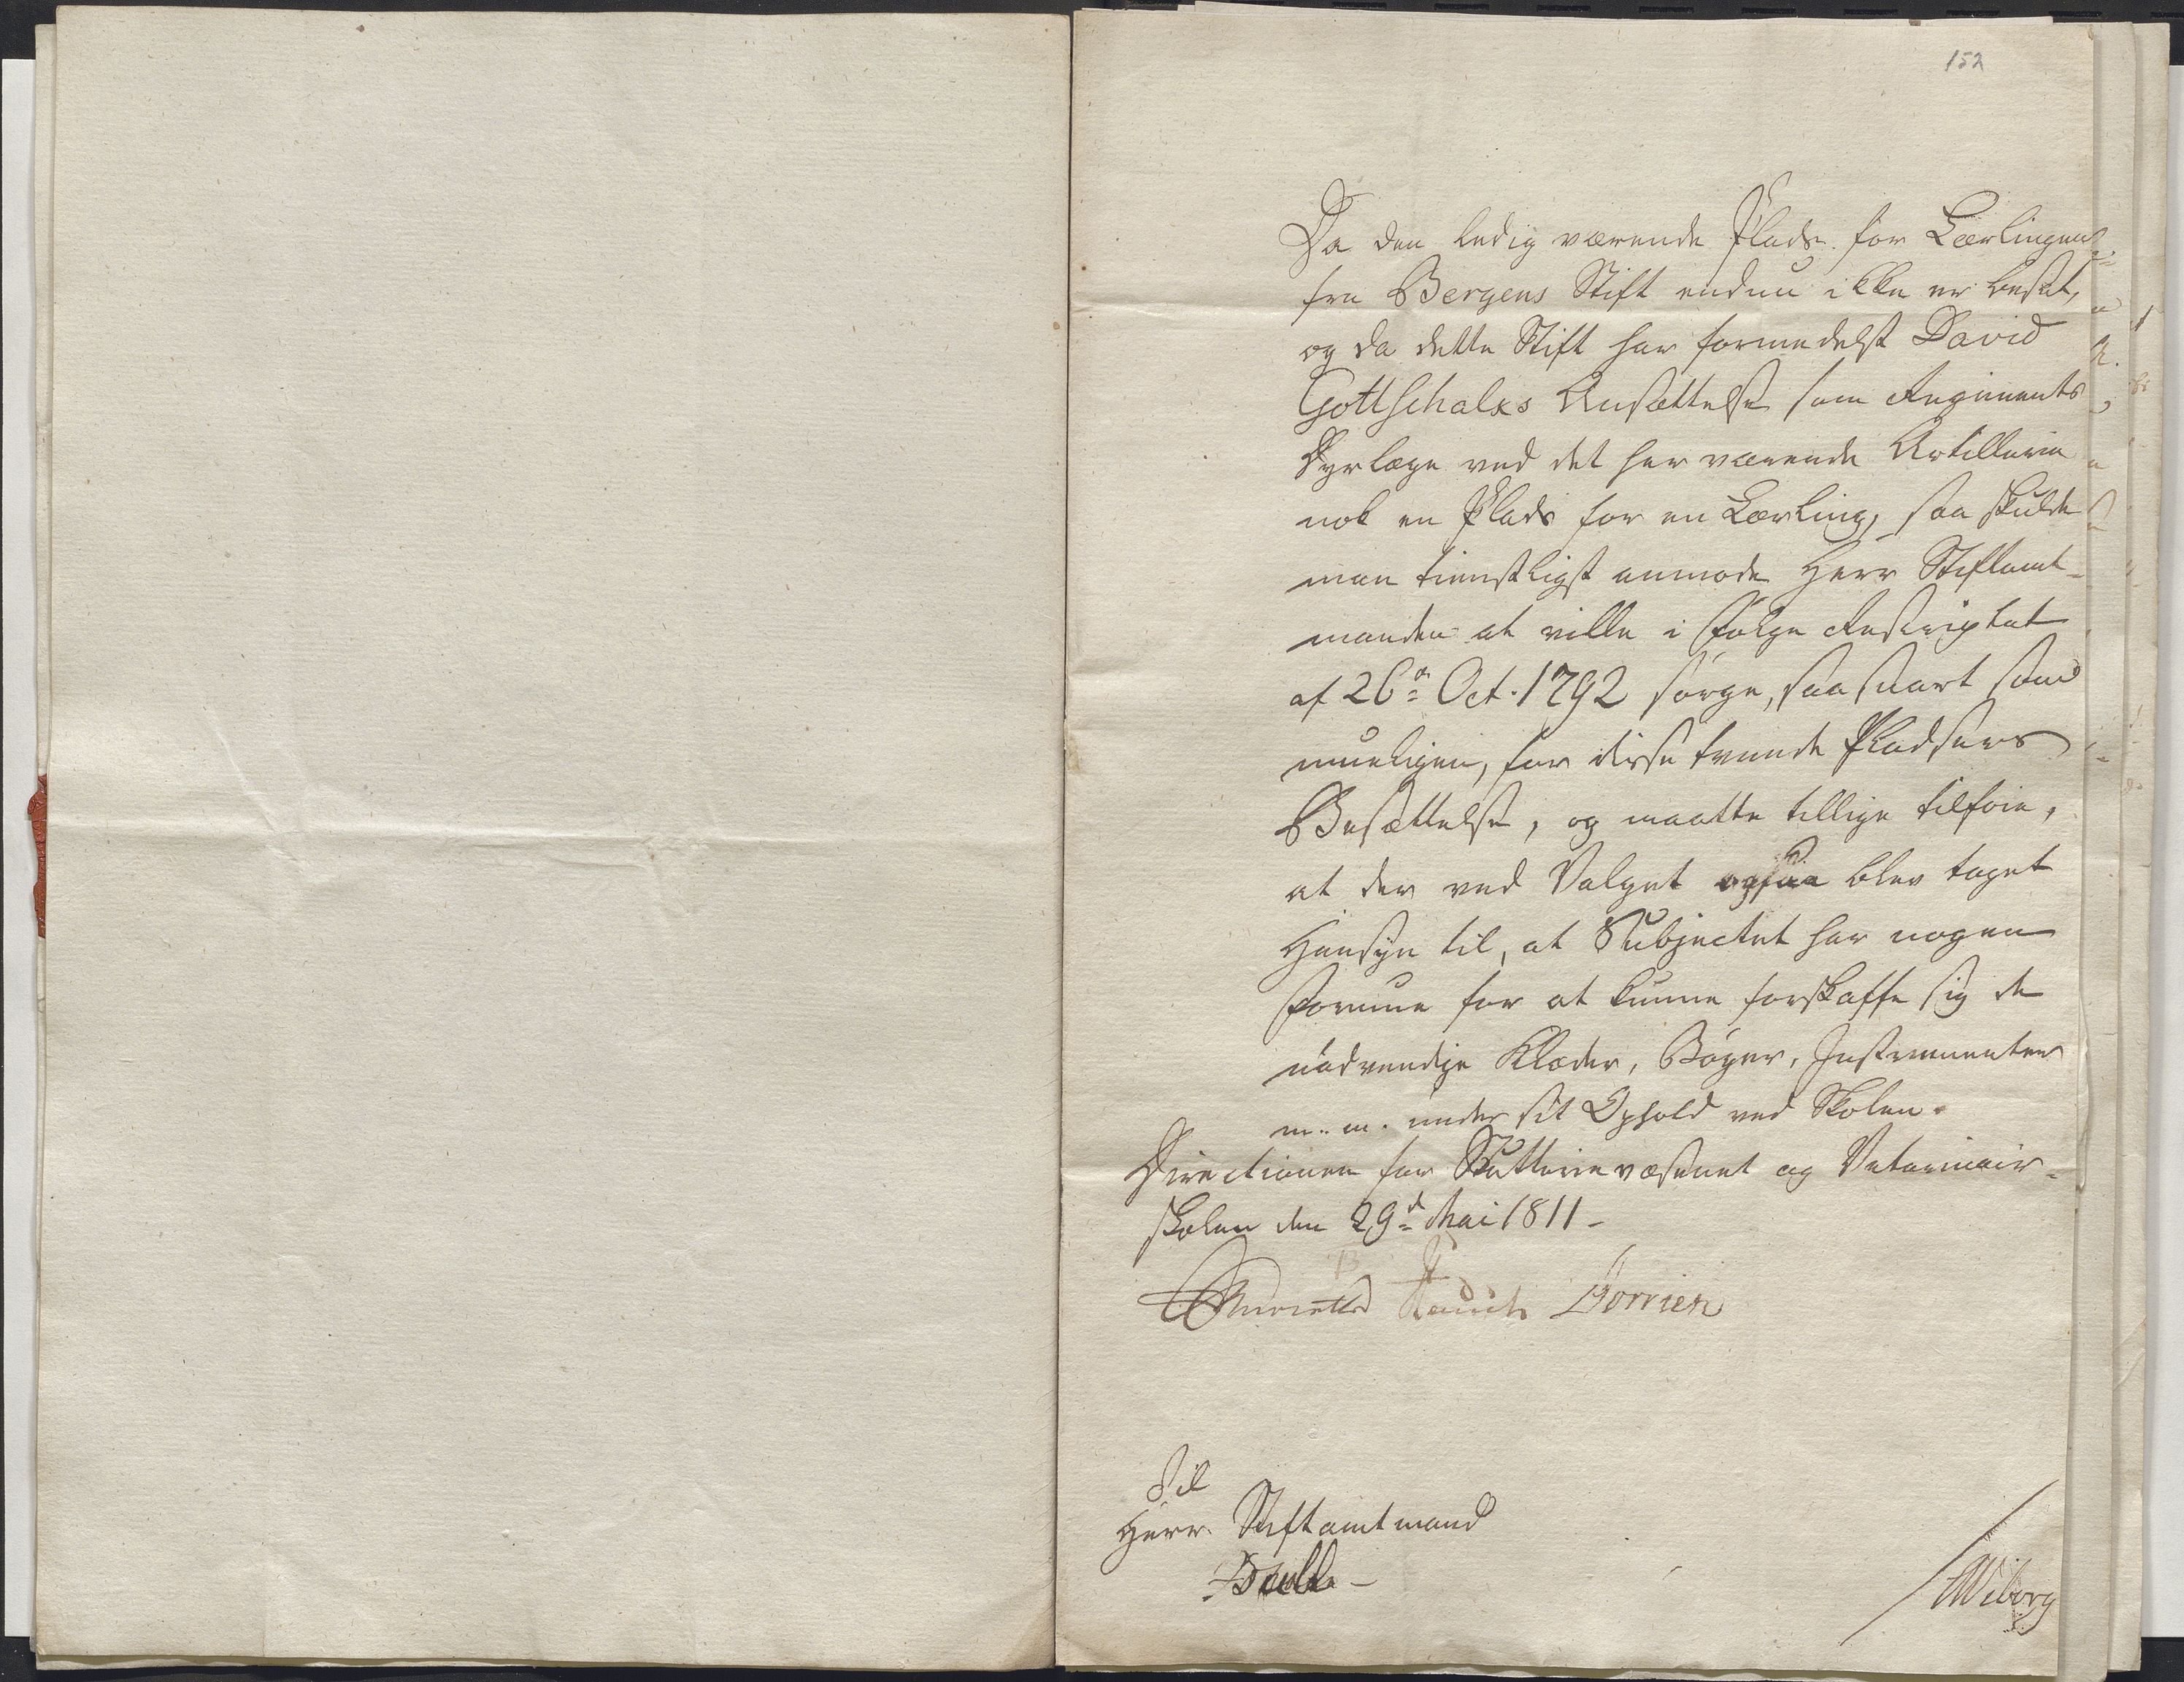 152
Da den ledig værende Plads for Lærlingen
fra Bergens Stift endnu ikke er besat,
og da dette Stift har formedelst David
Gottschalks Ansættelse som Regiments
Dyrlæge ved det her værende Artillerie
nok en Plads for en Lærling, saa skulde
man tienstligst anmode Herr Stiftamt-
manden at ville i Følge Rescriptet
af 26n Oct. 1792 sørge, saa snart som
mueligen, for disse tvende Pladsers
Besættelse, og maatte tillige tilføie,
at der ved Valget ogsaa blev taget
Hensyn til, at Subjectet har nogen
Formue for at kunne forskaffe sig de
nødvendige Klæder, Bøger, Instrumenter
m. m. under sit Ophold ved Skolen.
Directionen for Stutterievæsenet og Veterinair-
skolen den 29d Mai 1811 -
Hauch Dorrien
Til
Herr Stiftamtmand
Bulle -
Wiborg